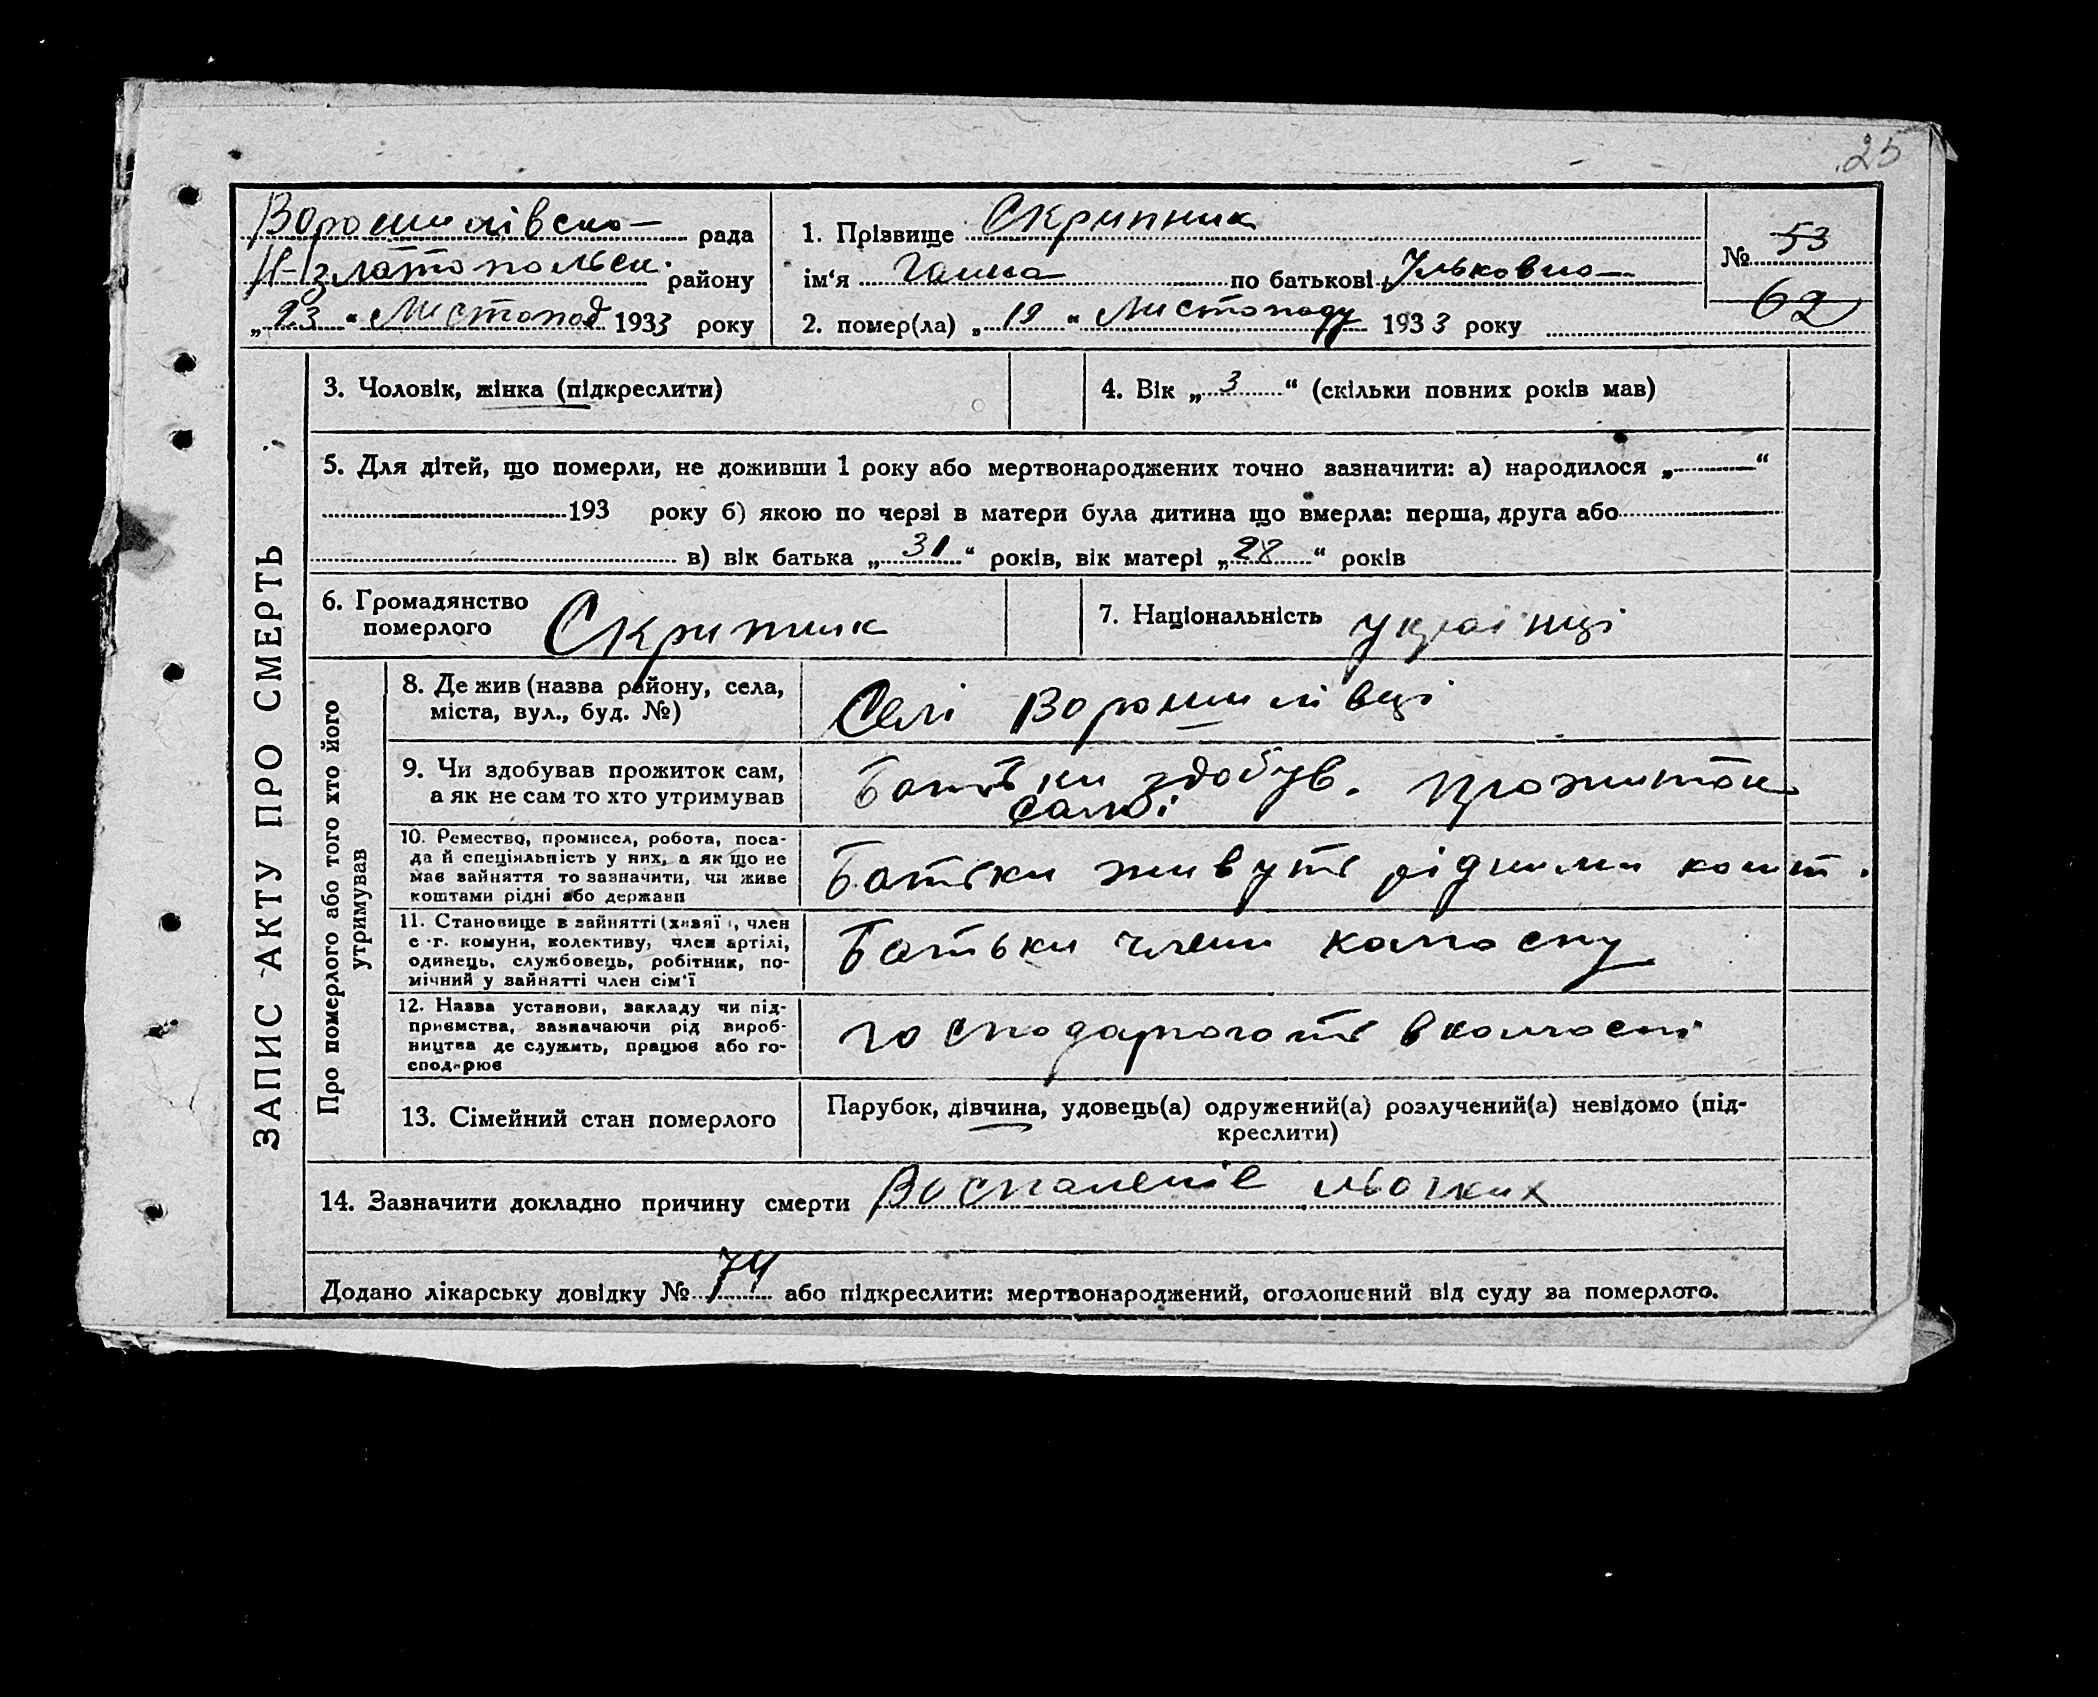 25
Ворошилівсько рада
Н-Златопольськ. району
„23“ Листопад 1933 року
1. Прізвище Скрипник
ім‘я Ганна по батькові Ільковно
2. помер(ла) „19“ Листопаду 1933 року
№ 53
62
ЗАПИС АКТУ ПРО СМЕРТЬ
3. Чоловік, жінка (підкреслити)
4. Вік „3“ (скільки повних років мав)
5. Для дітей, що померли, не доживши 1 року або мертвонароджених точно зазначити: а) народилося „—“
193 року б) якою по черзі в матери була дитина що вмерла: перша, друга або
в) вік батька „31“ років, вік матері „28“ років
6. Громадянство
померлого Скрипник
7. Національність українці
Про померлого або того хто його
утримував
8. Де жив (назва району, села,
міста, вул., буд. №)
Селі Ворошилівці
9. Чи здобував прожиток сам,
а як не сам то хто утримував
Батьки здобув. прожиток
самі
10. Ремество, промисел, робота, поса-
да й спеціяльність у них, а як що не
має зайняття то зазначити, чи живе
коштами рідні або держави
Батьки живуть рідними кошт.
11. Становище в зайнятті (хазяї, член
с-г. комуни, колективу, член артілі,
одинець, службовець, робітник, по-
мічний у зайнятті член сім‘ї
Батьки члени колгоспу
12. Назва установи, закладу чи під-
приємства, зазначаючи рід вироб-
ництва де служить, працює або го-
сподарює
господарюють в колгоспі
13. Сімейний стан померлого
Парубок, дівчина, удовець(а) одружений(а) розлучений(а) невідомо (під-
креслити)
14. Зазначити докладно причину смерти Воспаленіе льогких
Додано лікарську довідку № 74 або підкреслити: мертвонароджений, оголошений від суду за померлого.